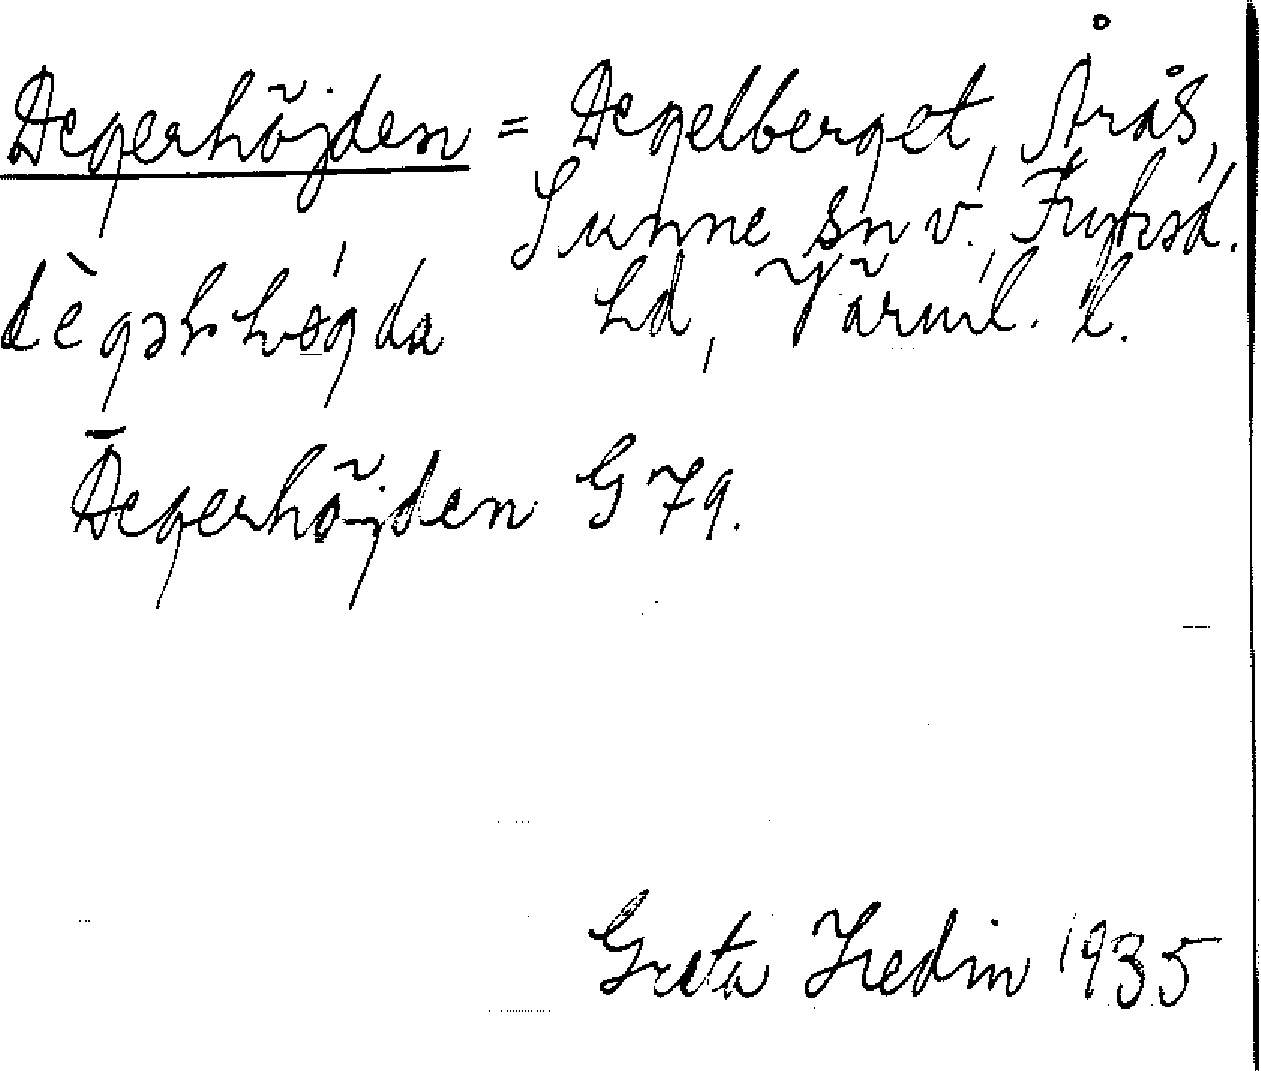 Degerhöjden = Degelberget, Årås,
Sunne sn v., Fryksd.
dègər hǿgda hd, Värml. l.
Degerhöjden G 79.
Greta Hedin 1935